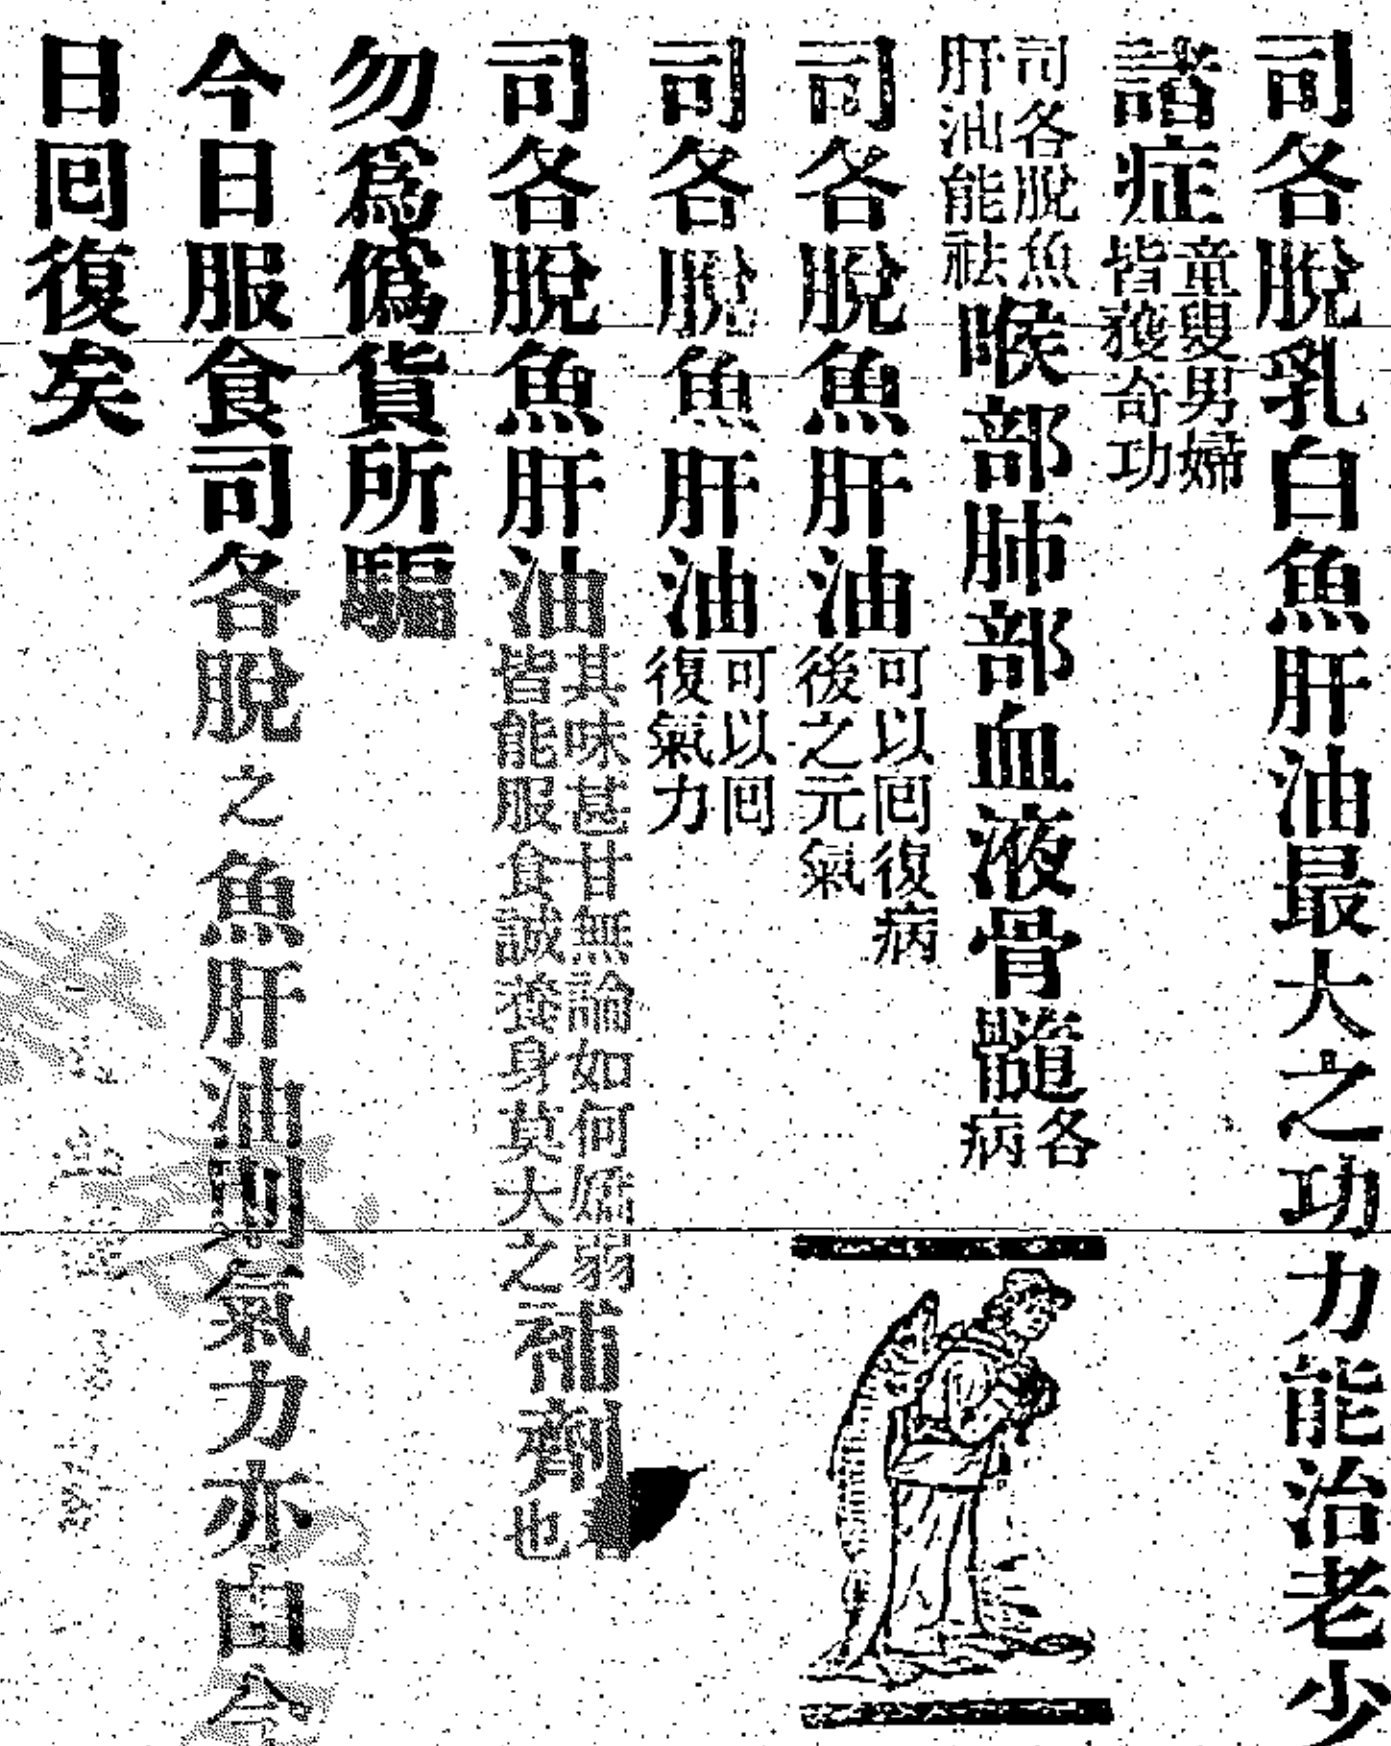 司各脫乳白魚肝油最大之功力能治老少
諸症
童叟男婦
皆獲奇功
司各脫魚
肝油能祛
喉部肺部血液骨髓
各
病
司各脫魚肝油
可以囘復病
後之元氣
司各脫魚肝油
可以囘
復氣力
司各脫魚肝油
其味甚甘無論如何孱弱
皆能服食誠養身莫大之
補劑
者
也
勿爲僞貨所騙
今日服食司各脫之魚肝油則氣力亦由今
日囘復矣